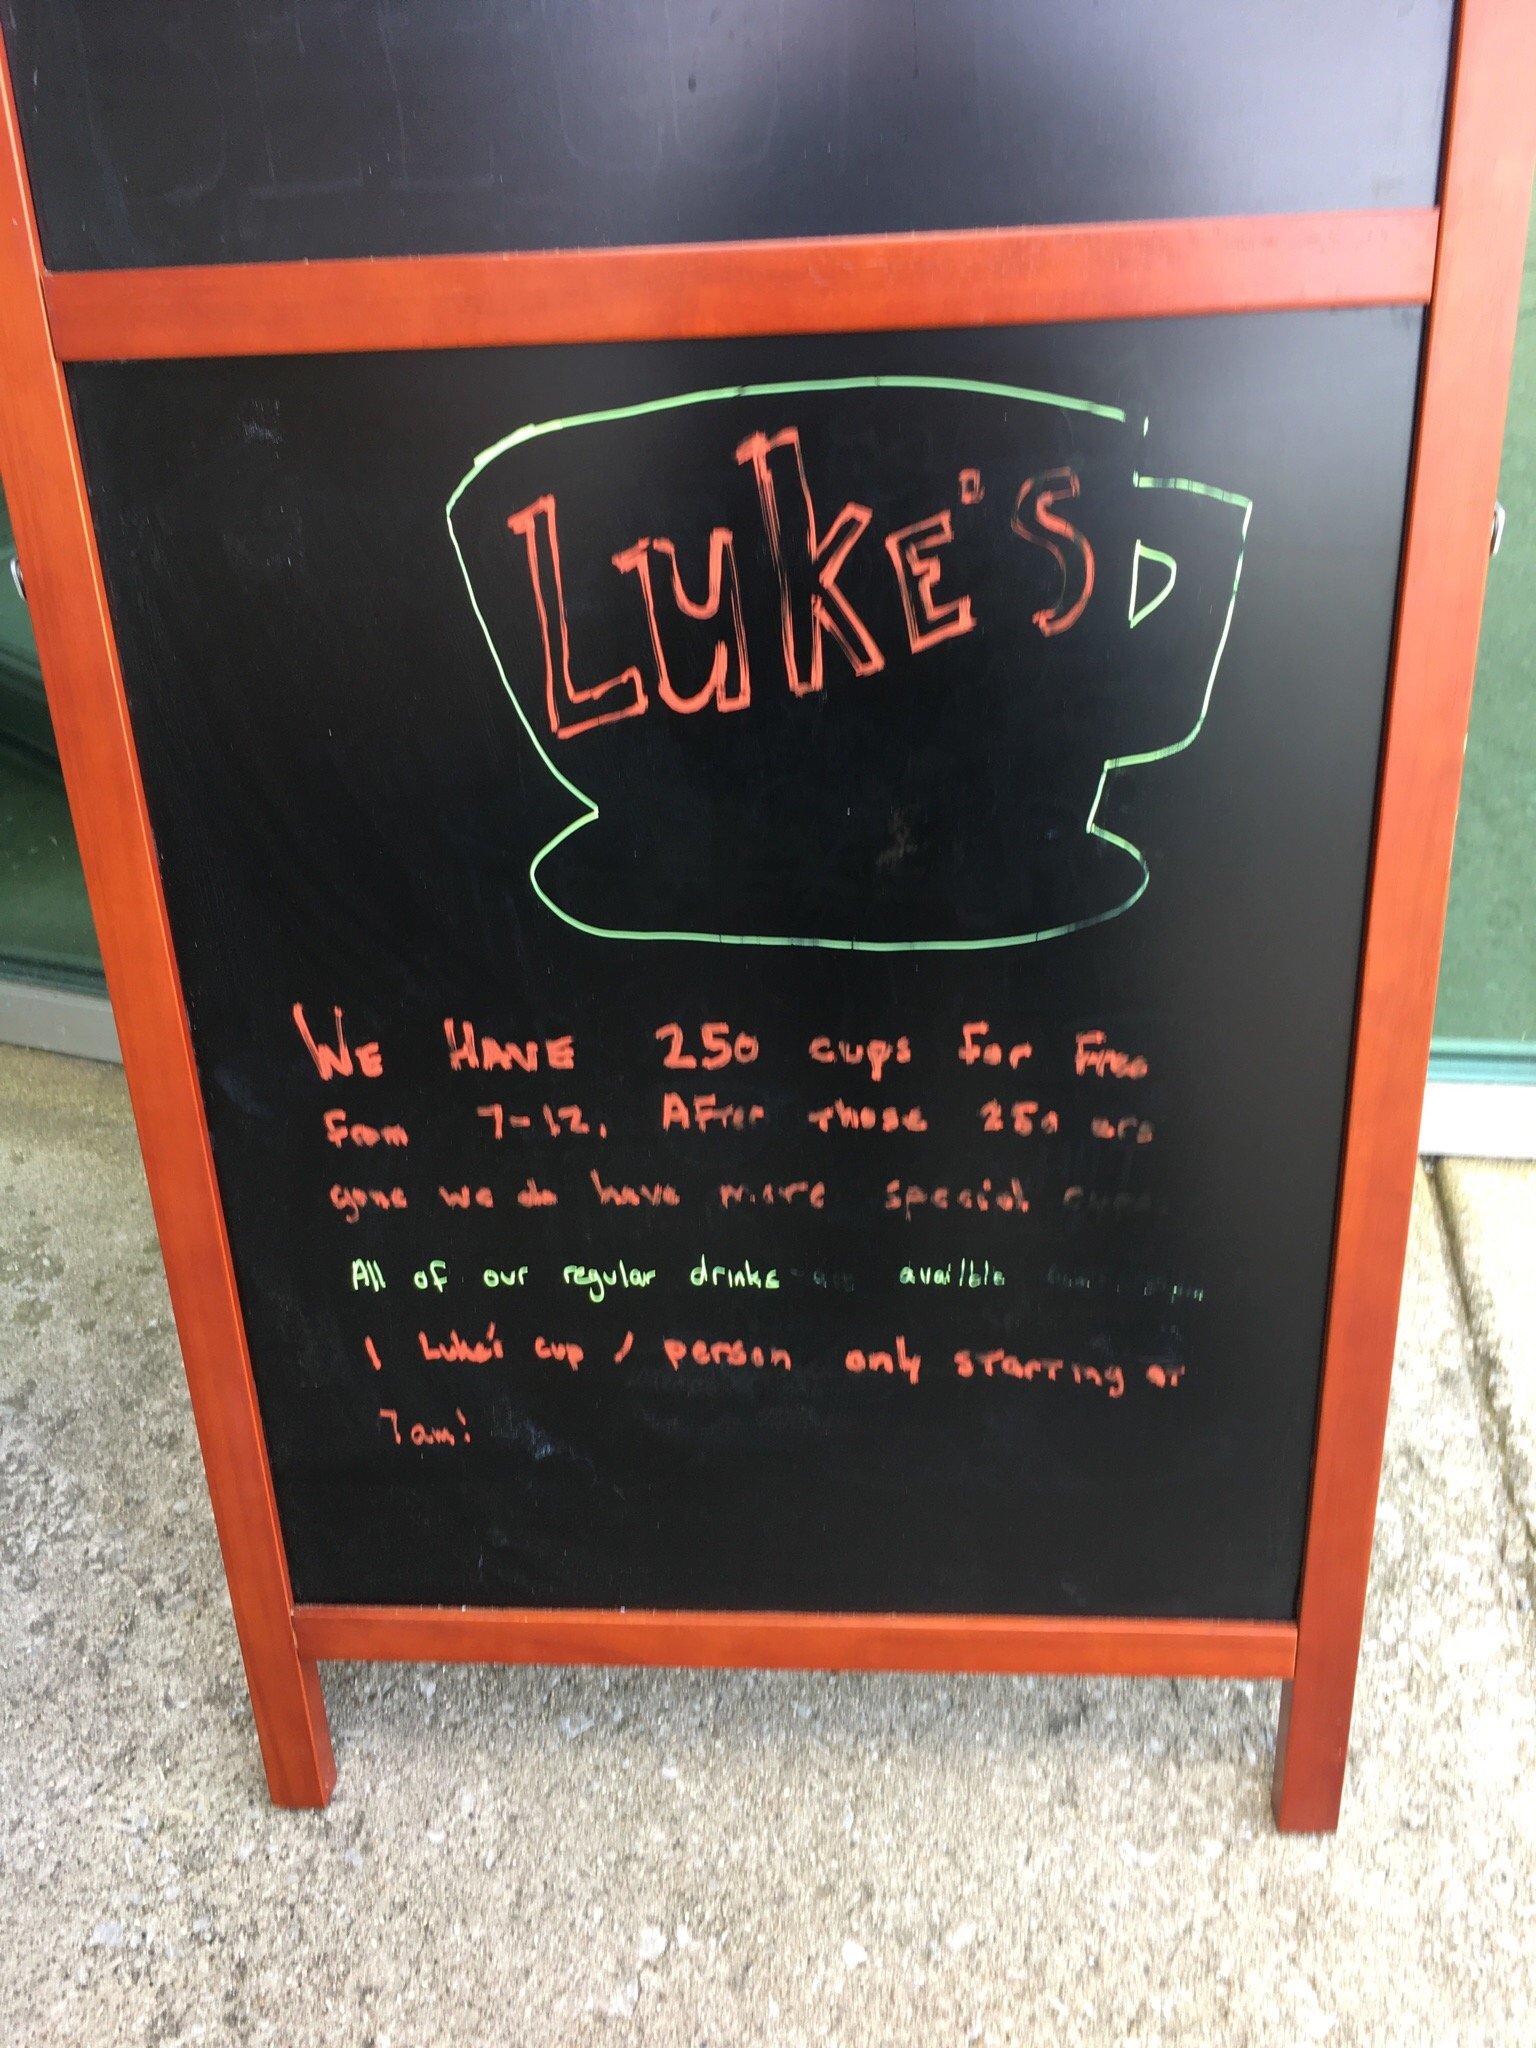 LUKE'S
WE HAVE 250 cups for Free
from 7-12. After those 250 are
gone we do have more special cups
All of our regular drinks are availble
1 Luke's cup / person only starting at
7am!